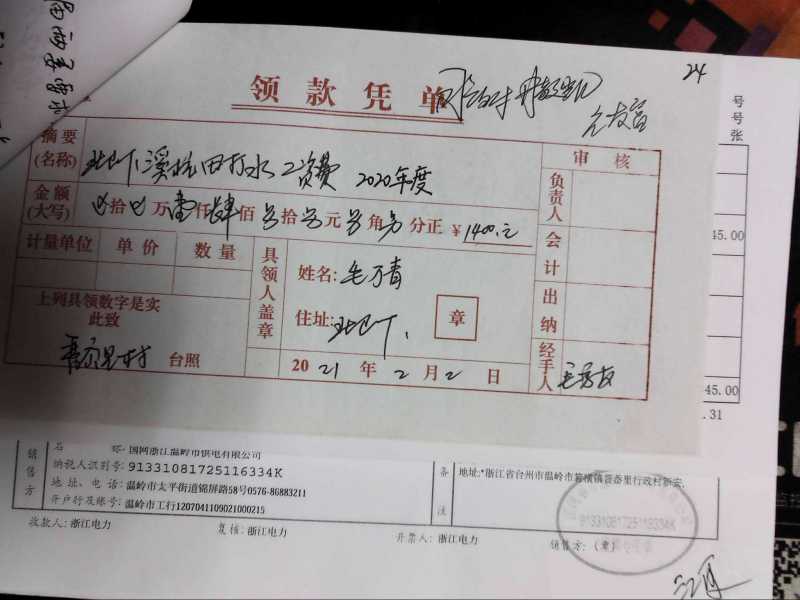 24
领款凭单
摘要
(名称)
溪坑田打水工资费 2020年度
审核
金额
(大写)
拾 万壹仟肆佰 拾 元 角 分正 ¥1400.元
负责人
计量单位 单价 数量
具领人盖章
姓名:毛万青
会计
住址:
章
上列具领数字是实
此致
出纳
台照
2021年2月2日
经手人
号
号
张
45.00
45.00
.31
销售方
国网浙江温岭市供电有限公司
纳税人识别号:91331081725116334K
地址、电话:温岭市太平街道锦屏路58号0576-86883211
开户行及账号:温岭市工行1207041109021000215
备注
地址:*浙江省台州市温岭市箬横镇晋岙里行政村新安,
91331081725116334K
收款人:浙江电力
复核:浙江电力
开票人:浙江电力
销售方:(章)